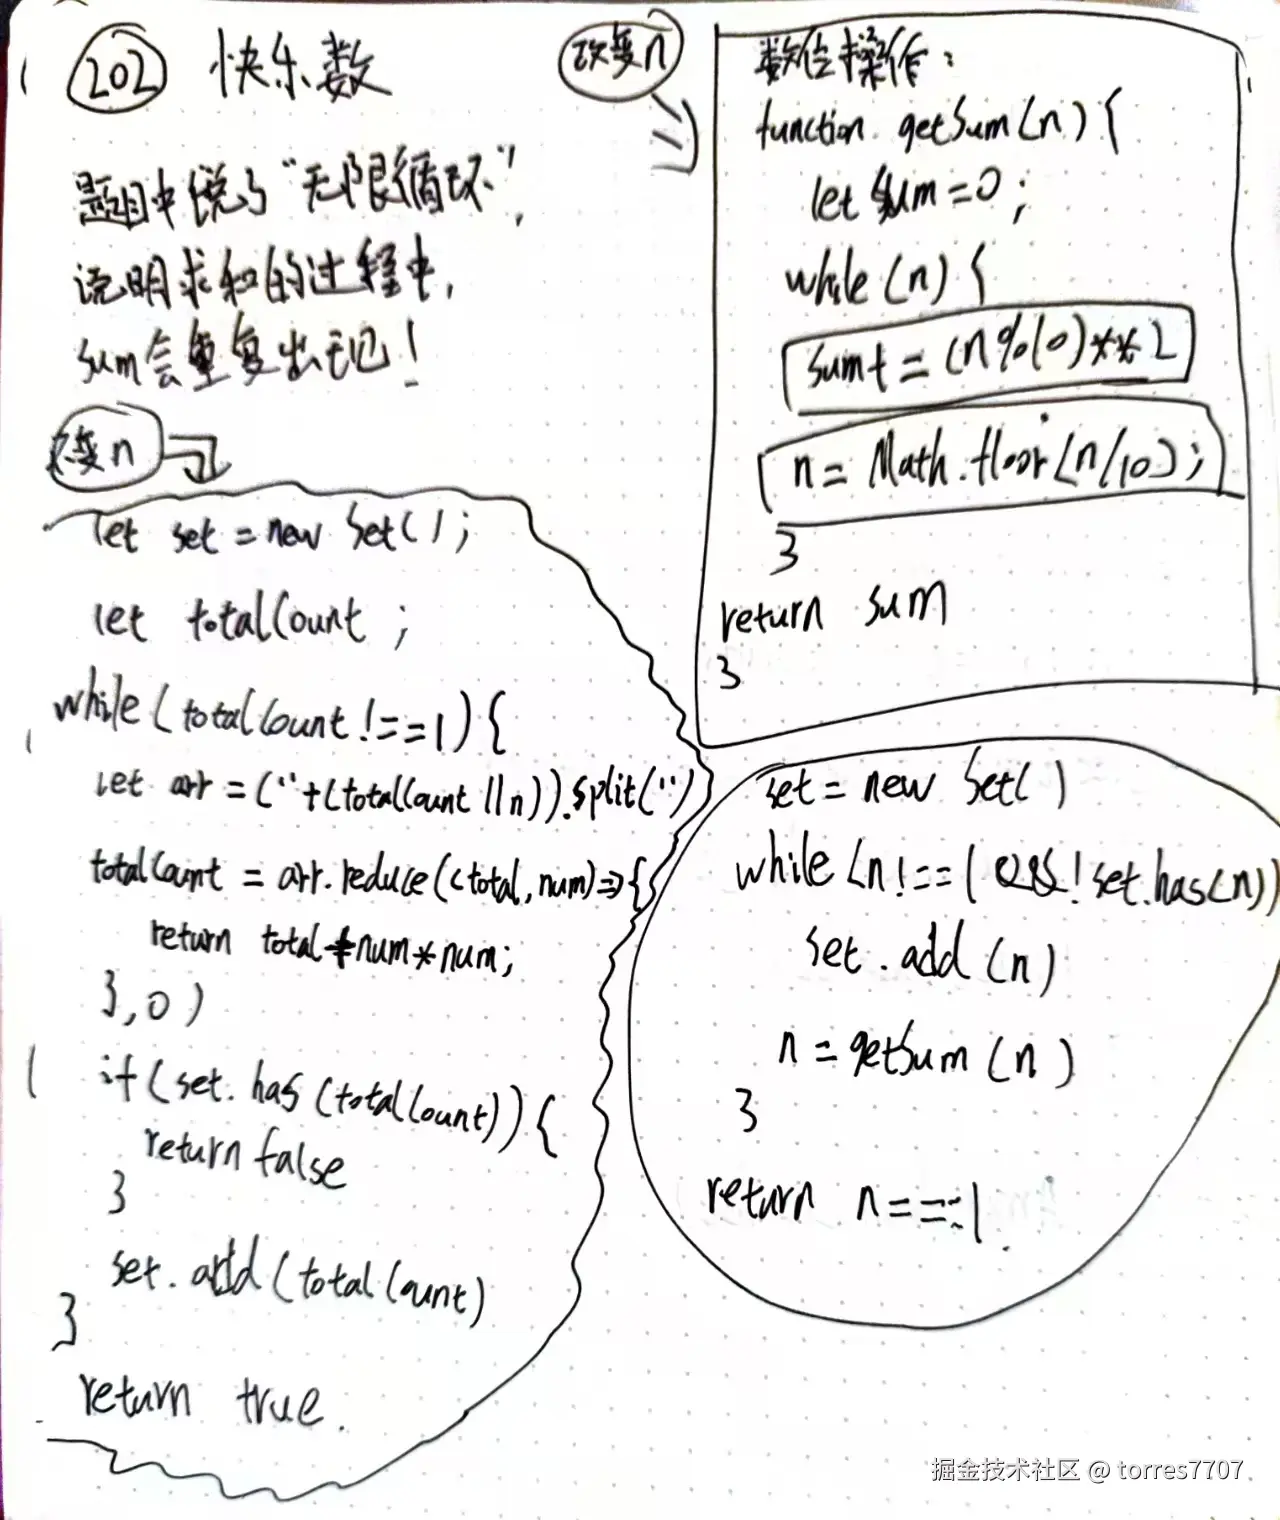 202 快乐数
题目中说了“无限循环”,
说明求和的过程中,
sum会重复出现!
变n
let set = new Set();
let totalCount ;
while(totalCount !==1){
let arr = (''+(totalCount || n)).split('')
totalCount = arr.reduce((total,num)=>{
return total+num*num;
},0)
if(set.has(totalCount)){
return false
}
set.add(totalCount)
}
return true.
改变n
数位操作:
function getSum(n){
let sum=0;
while(n){
sum+=(n%10)**2
n= Math.floor(n/10);
}
return sum
}
set = new Set()
while(n!==1 &&!set.has(n))
set.add(n)
n=getSum(n)
}
return n===1.
掘金技术社区 @ torres7707